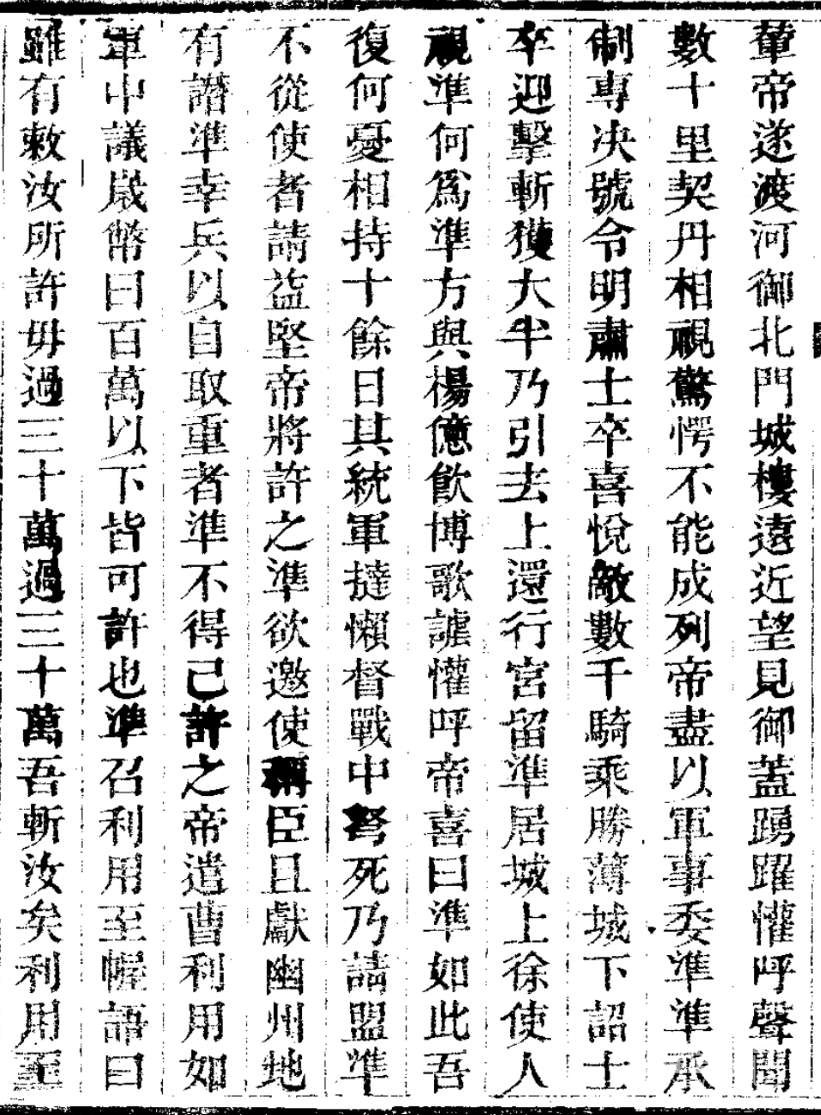 輦帝遂渡河御北門城樓遠近望見御蓋踴躍懽呼聲聞
數十里契丹相視驚愕不能成列帝盡以軍事委準準承
制專決號令明肅士卒喜悅敵數千騎乘勝薄城下詔士
卒迎擊斬獲大半乃引去上還行宮留準居城上徐使人
視準何爲準方與楊億飲博歌謔懽呼帝喜曰準如此吾
復何憂相持十餘日其統軍撻懶督戰中弩死乃請盟準
不從使者請益堅帝將許之準欲邀使稱臣且獻幽州地
有譖準幸兵以自取重者準不得已許之帝遣曹利用如
軍中議歲幣曰百萬以下皆可許也準召利用至幄語曰
雖有敕汝所許毋過三十萬過三十萬吾斬汝矣利用至